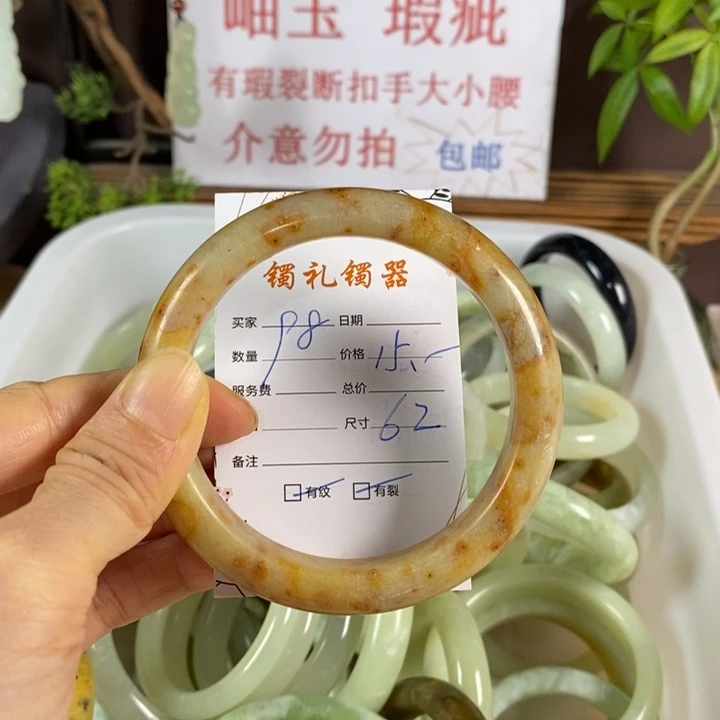 岫玉 瑕疵
有瑕裂断扣手大小腰
介意勿拍 包邮
镯礼镯器
买家 98 日期
数量 价格 15.-
服务费 总价
尺寸 62
备注
有纹 有裂